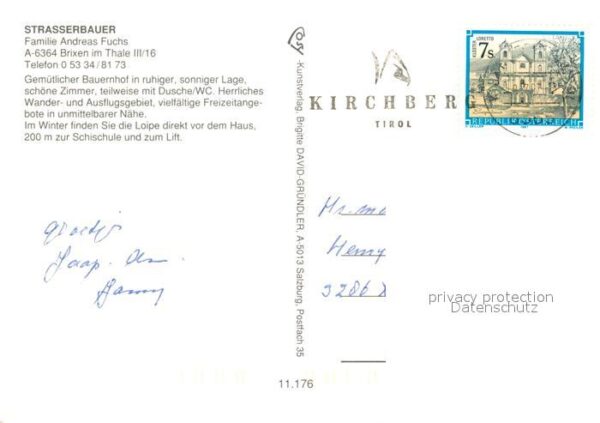 STRASSERBAUER
Familie Andreas Fuchs
A-6364 Brixen im Thale III/16
Telefon 0 53 34 / 81 73
Gemütlicher Bauernhof in ruhiger, sonniger Lage,
schöne Zimmer, teilweise mit Dusche/WC. Herrliches
Wander- und Ausflugsgebiet, vielfältige Freizeitange-
bote in unmittelbarer Nähe.
Im Winter finden Sie die Loipe direkt vor dem Haus,
200 m zur Schischule und zum Lift.
groetjes
Jaap
Kunstverlag, Brigitte DAVID-GRÜNDLER, A-5013 Salzburg, Postfach 35
11.176
KIRCHBERG
TIROL
KLOSTER LORETTO
7s
REPUBLIK ÖSTERREICH
privacy protection
Datenschutz